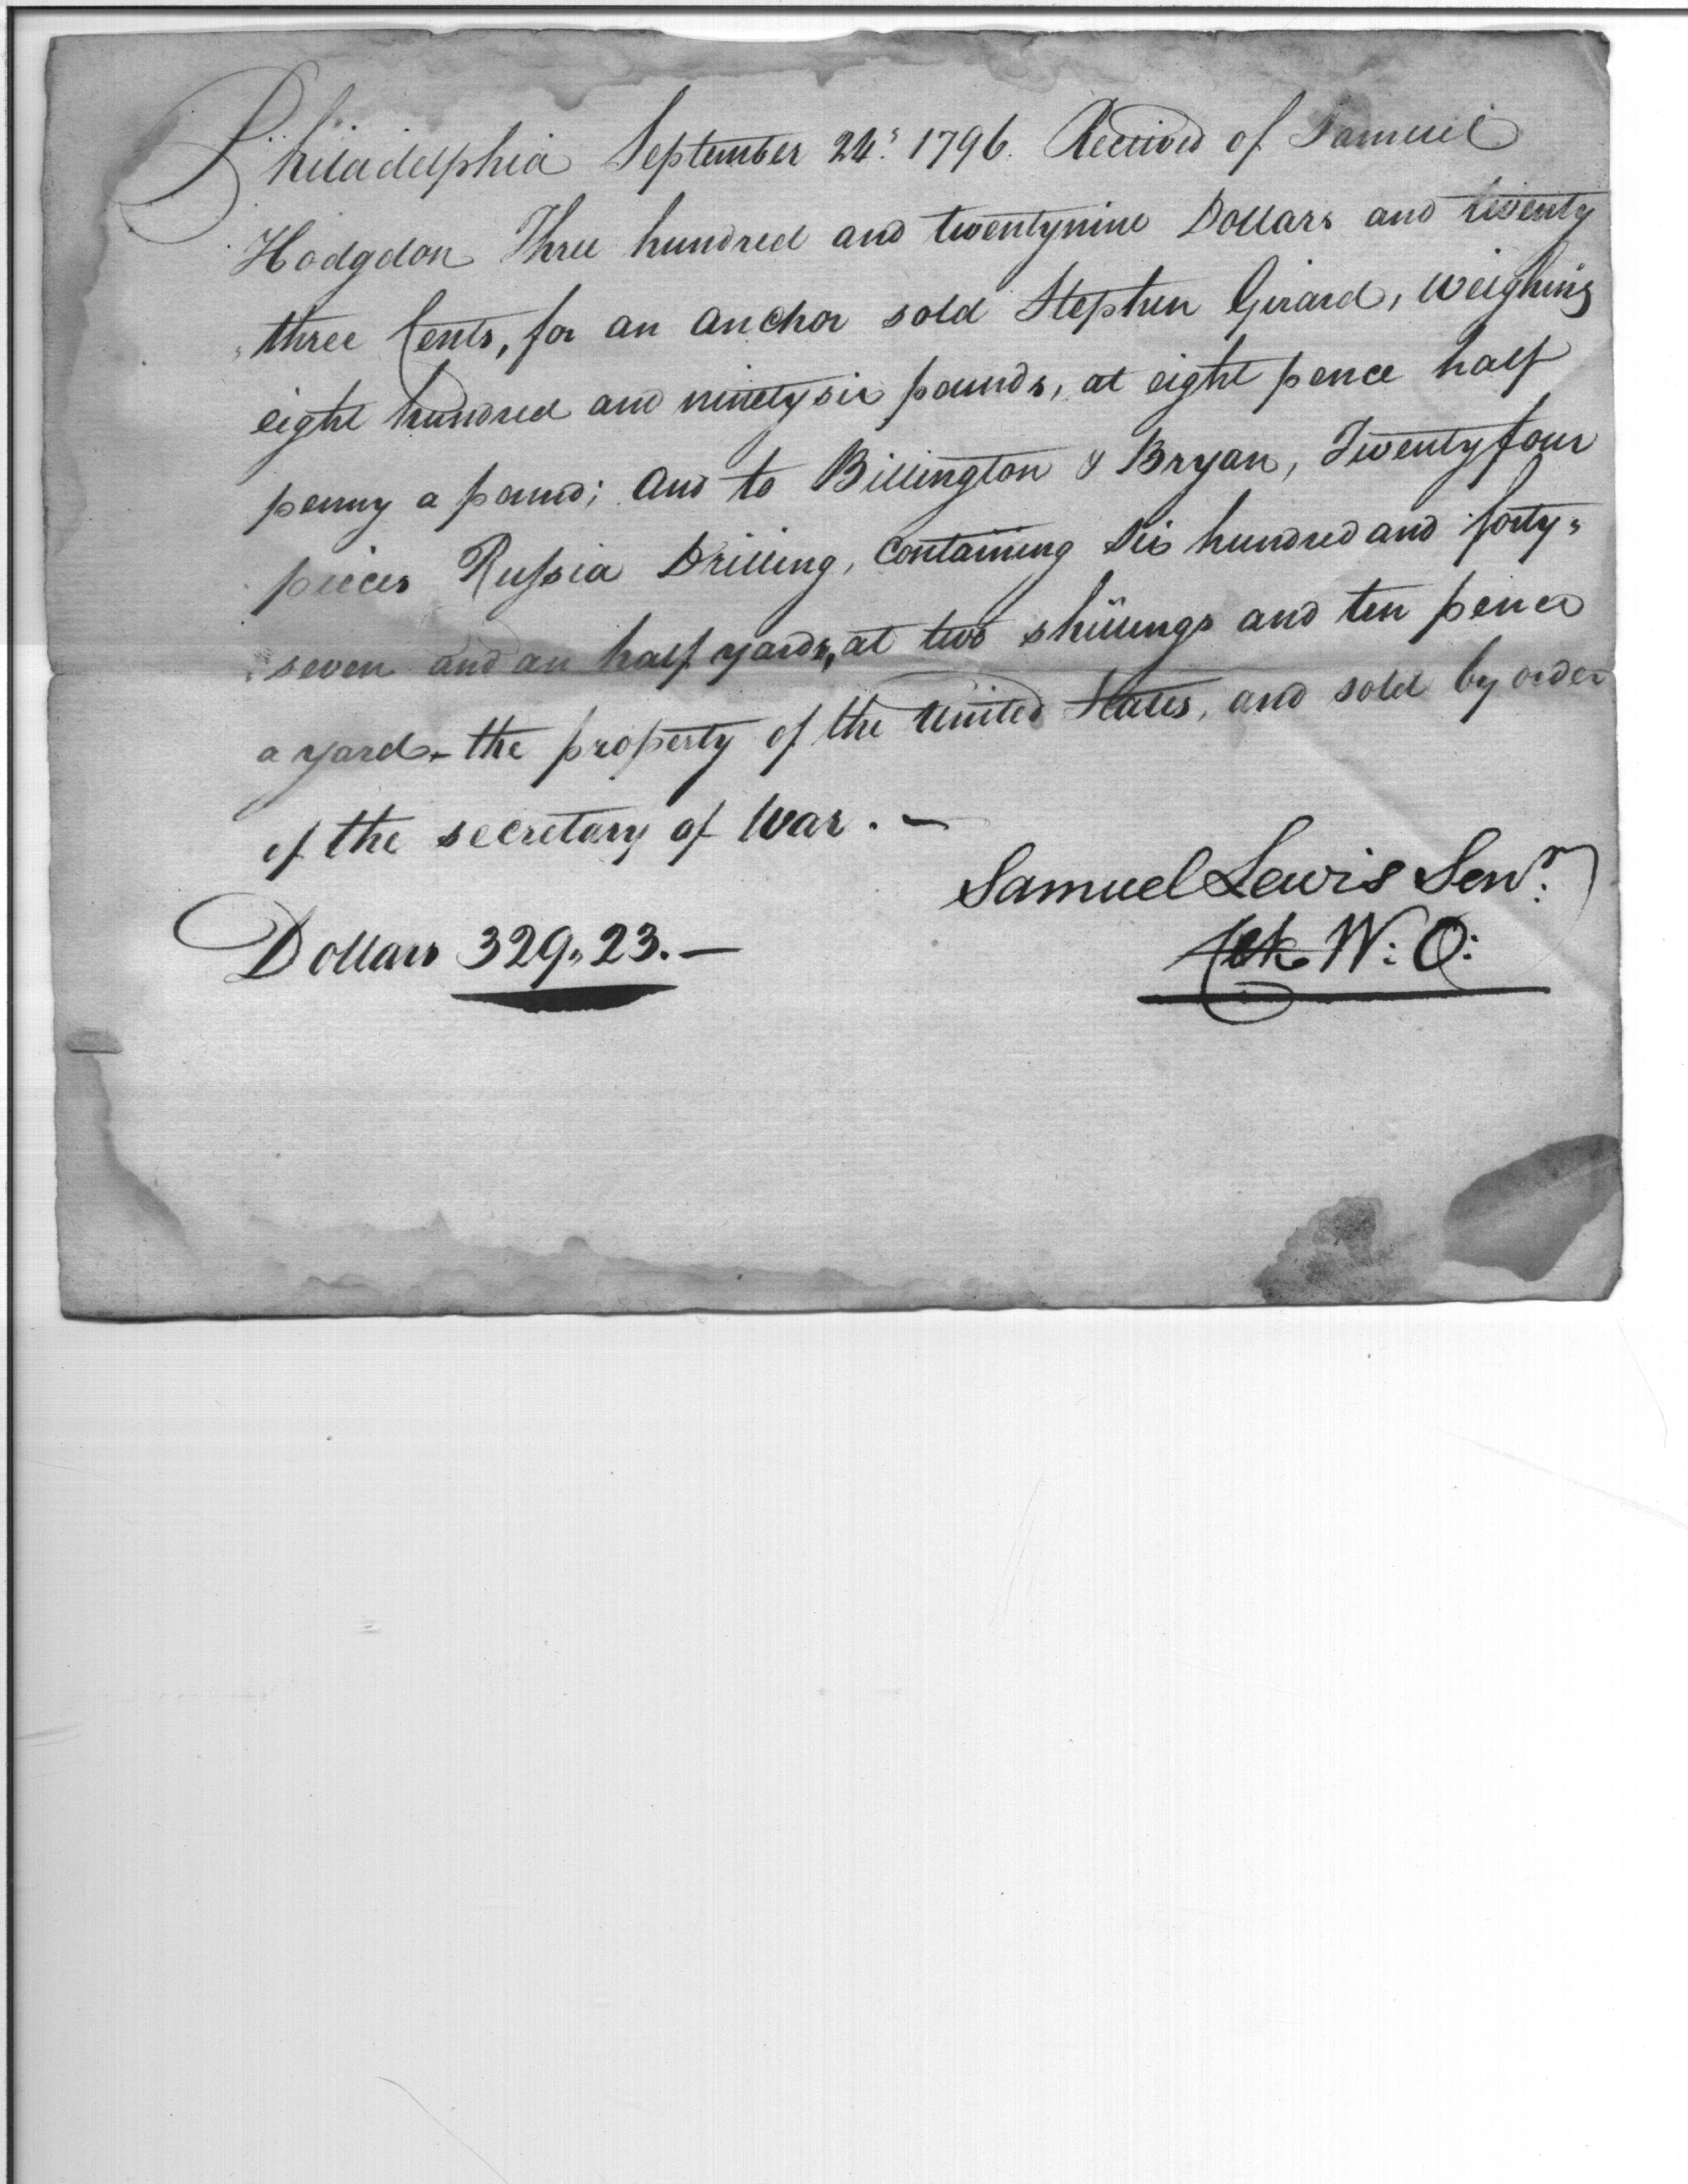 Philadelphia September 24: 1796. Received of Samuel
Hodgdon Three hundred and twentynine Dollars and twenty
three Cents, for an anchor sold Stephen Girard, weighing
eight hundred and ninetysix pounds, at eight pence half
penny a pound; and to Billington & Bryan, Twentyfour
pieces Russia Drilling, containing Six hundred and forty=
seven and an half yards, at two shillings and ten pence
a yard - the property of the United States, and sold by order
of the secretary of War. —
Samuel Lewis Senr.
Clk W: O:
Dollars 329,,23. —